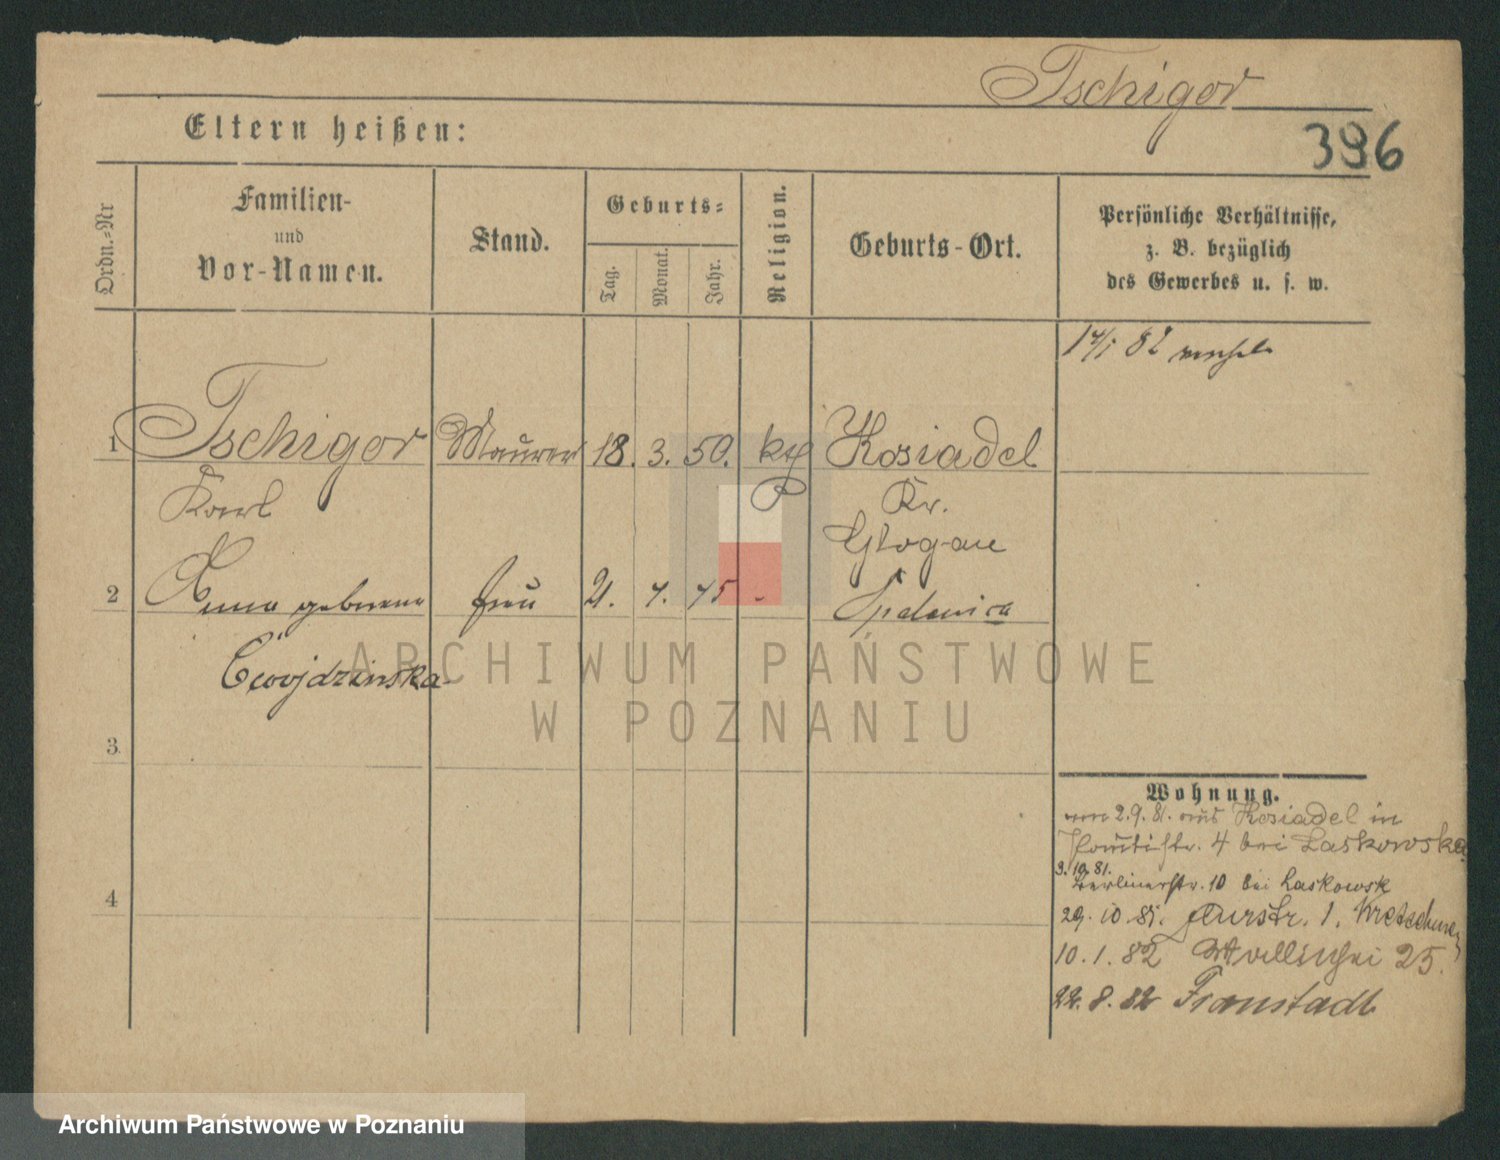 Tschigor
Eltern heißen:
396
Ordn.-Nr
Familien-
und
Vor-Namen.
Stand.
Geburts-
Tag.
Monat.
Jahr.
Religion.
Geburts-Ort.
Persönliche Verhältnisse,
z. B. bezüglich
des Gewerbes u. s. w.
14/1 82
1 Tschigor Maurer 18. 3. 50. kth Kosiadel
Karl Kr.
Glogau
2 Anna geborene Frau 21. 7. 45 - Opalenica
Cwojdzinska
ARCHIWUM PAŃSTWOWE
W POZNANIU
3.
4
Wohnung.
2.9.81. aus Kosiadel in
4 bei Laskowska
3.10.81.
Berlinerstr. 10 bei Laskowsk
29. 10. 81. 1. Kretschmer
10. 1. 82 25.
22. 8. 82 Fraustadt
Archiwum Państwowe w Poznaniu